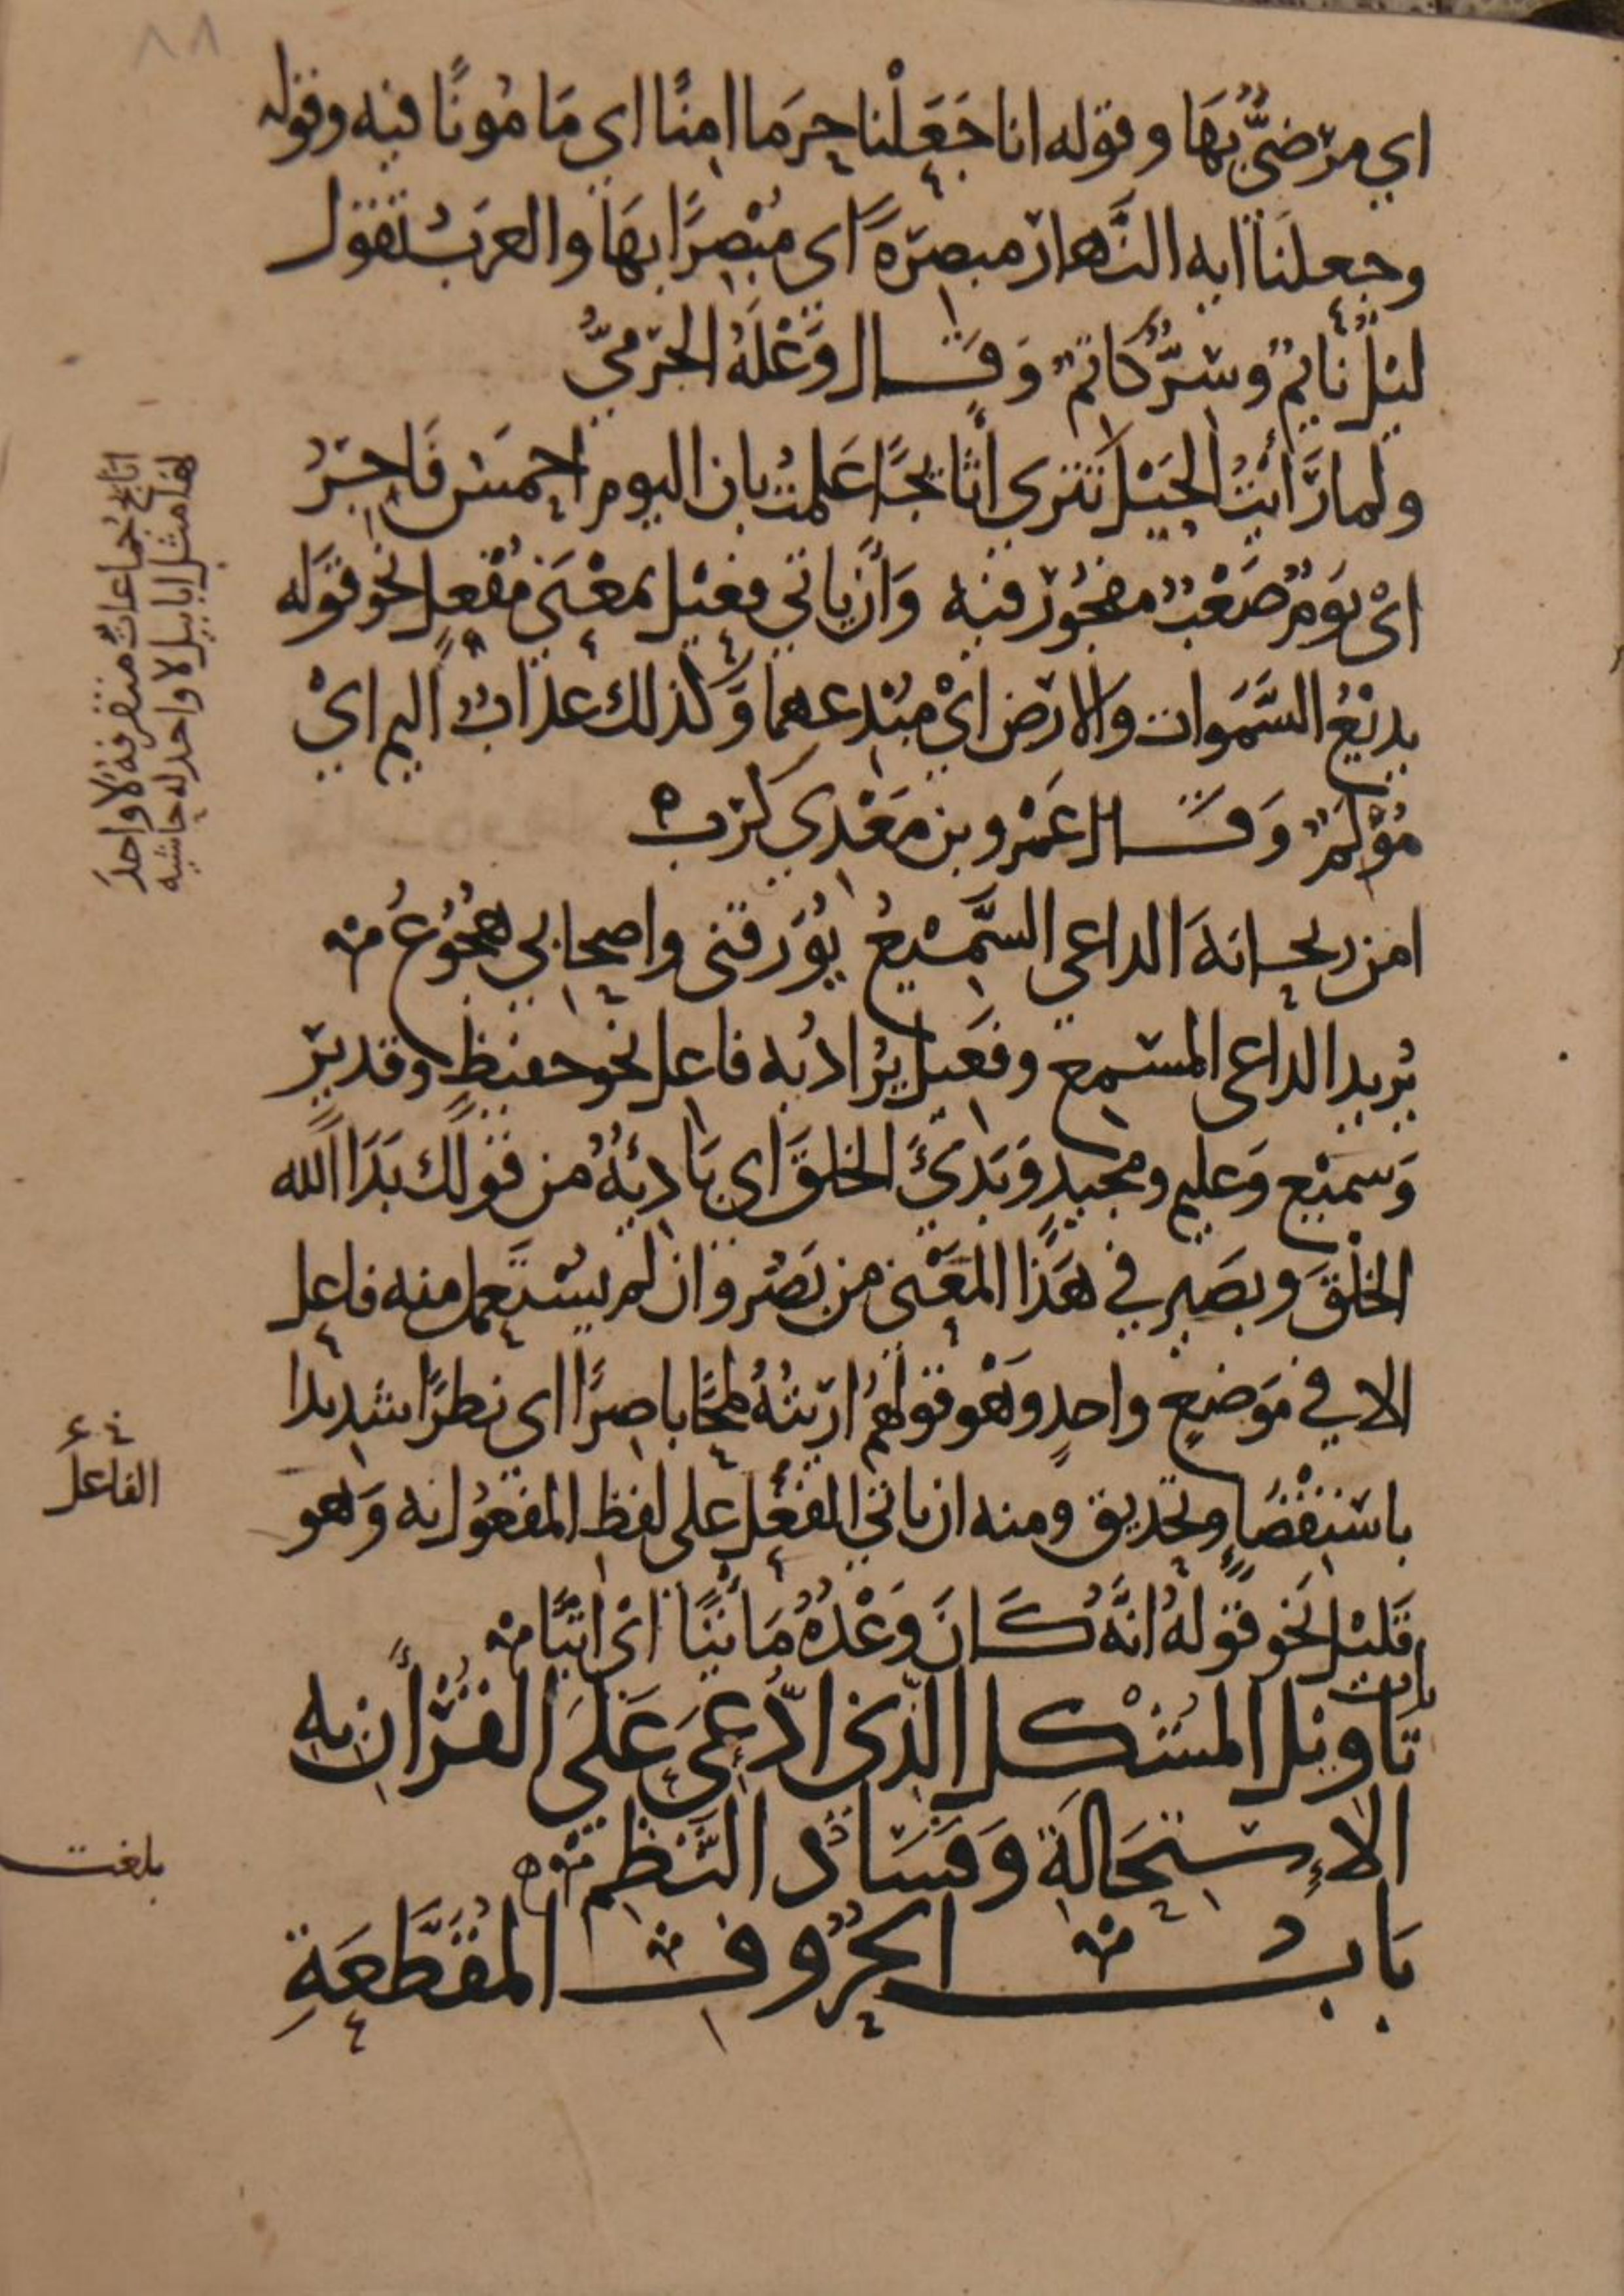 ٨٨
اي مرْضيٌّ بهَا وقوله انا جَعَلْنا حرَما امِنًا اي مَامُونًا فيه وقوله
وجعلنَا ايه النَّهار مبصرَهً اي مُبْصِرًا بهَا والعربُ تقول
ليْلٌ نايمٌ وسِرٌّ كَاتمٌ وَقَال وَعْلَهُ الجَرْميُّ
ولما رَأَيْتُ الخَيْل تترى أثايجًا عَلمتُ بان اليوم احمسُ فَاجِرُ
ايْ يَومٌ صَعْبٌ مفجُورٌ فيه وَأَن ياتي فعِيْل بمعْنَى مُفْعِل نحو قوَله
بديْعُ السَّمَوات والارض ايْ مبْدعهما وَكذلك عذابٌ اليم ايْ
مُؤْلمٌ وَقَال عَمْرو بن مَعْدي كربْ ه
امن ريحانهَ الداعي السَّميْعُ يُؤَرقنى واصحابي هجُوْعُ
يُريد الداعى المسْمع وفعَيل يُرادُ به فاعل نحو حفيظٍ وقديرٍ
وَسميْع وَعليم ومجيدٍ وَبَديّ الخلقَ اي بَاديهُ من قولك بَدَا الله
الخلْقَ وبصَير في هَذا المعْنى من بَصُر وان لم يسْتعمل منه فاعل
الا في مَوضعٍ واحدٍ وهَو قولهُم اريتهُ لمحًا باصرًا اي نظرًا شديدا
باستقْصَاٍ وتحديق ومنه ان ياتي الفعْل على لفظ المفعُول به وَهو
قَليْل نحو قوله انَّهُ كَانَ وَعْدُهُ مَاتيًا ايْ اتيًا
باب
تَاويْل المشْكل الّذي ادُّعيَ عَلَى القُرْأن به
الاِسْتحَالَة وَفسَاد النَّظم ه
بَابُ الحُرُوف المُقَطَّعَةِ
اثايج جُماعاتٌ متفرقهٌ لا واحدَ
لها مثل ابابيل لا واحد له حاشيه
الفاعل
بلغت